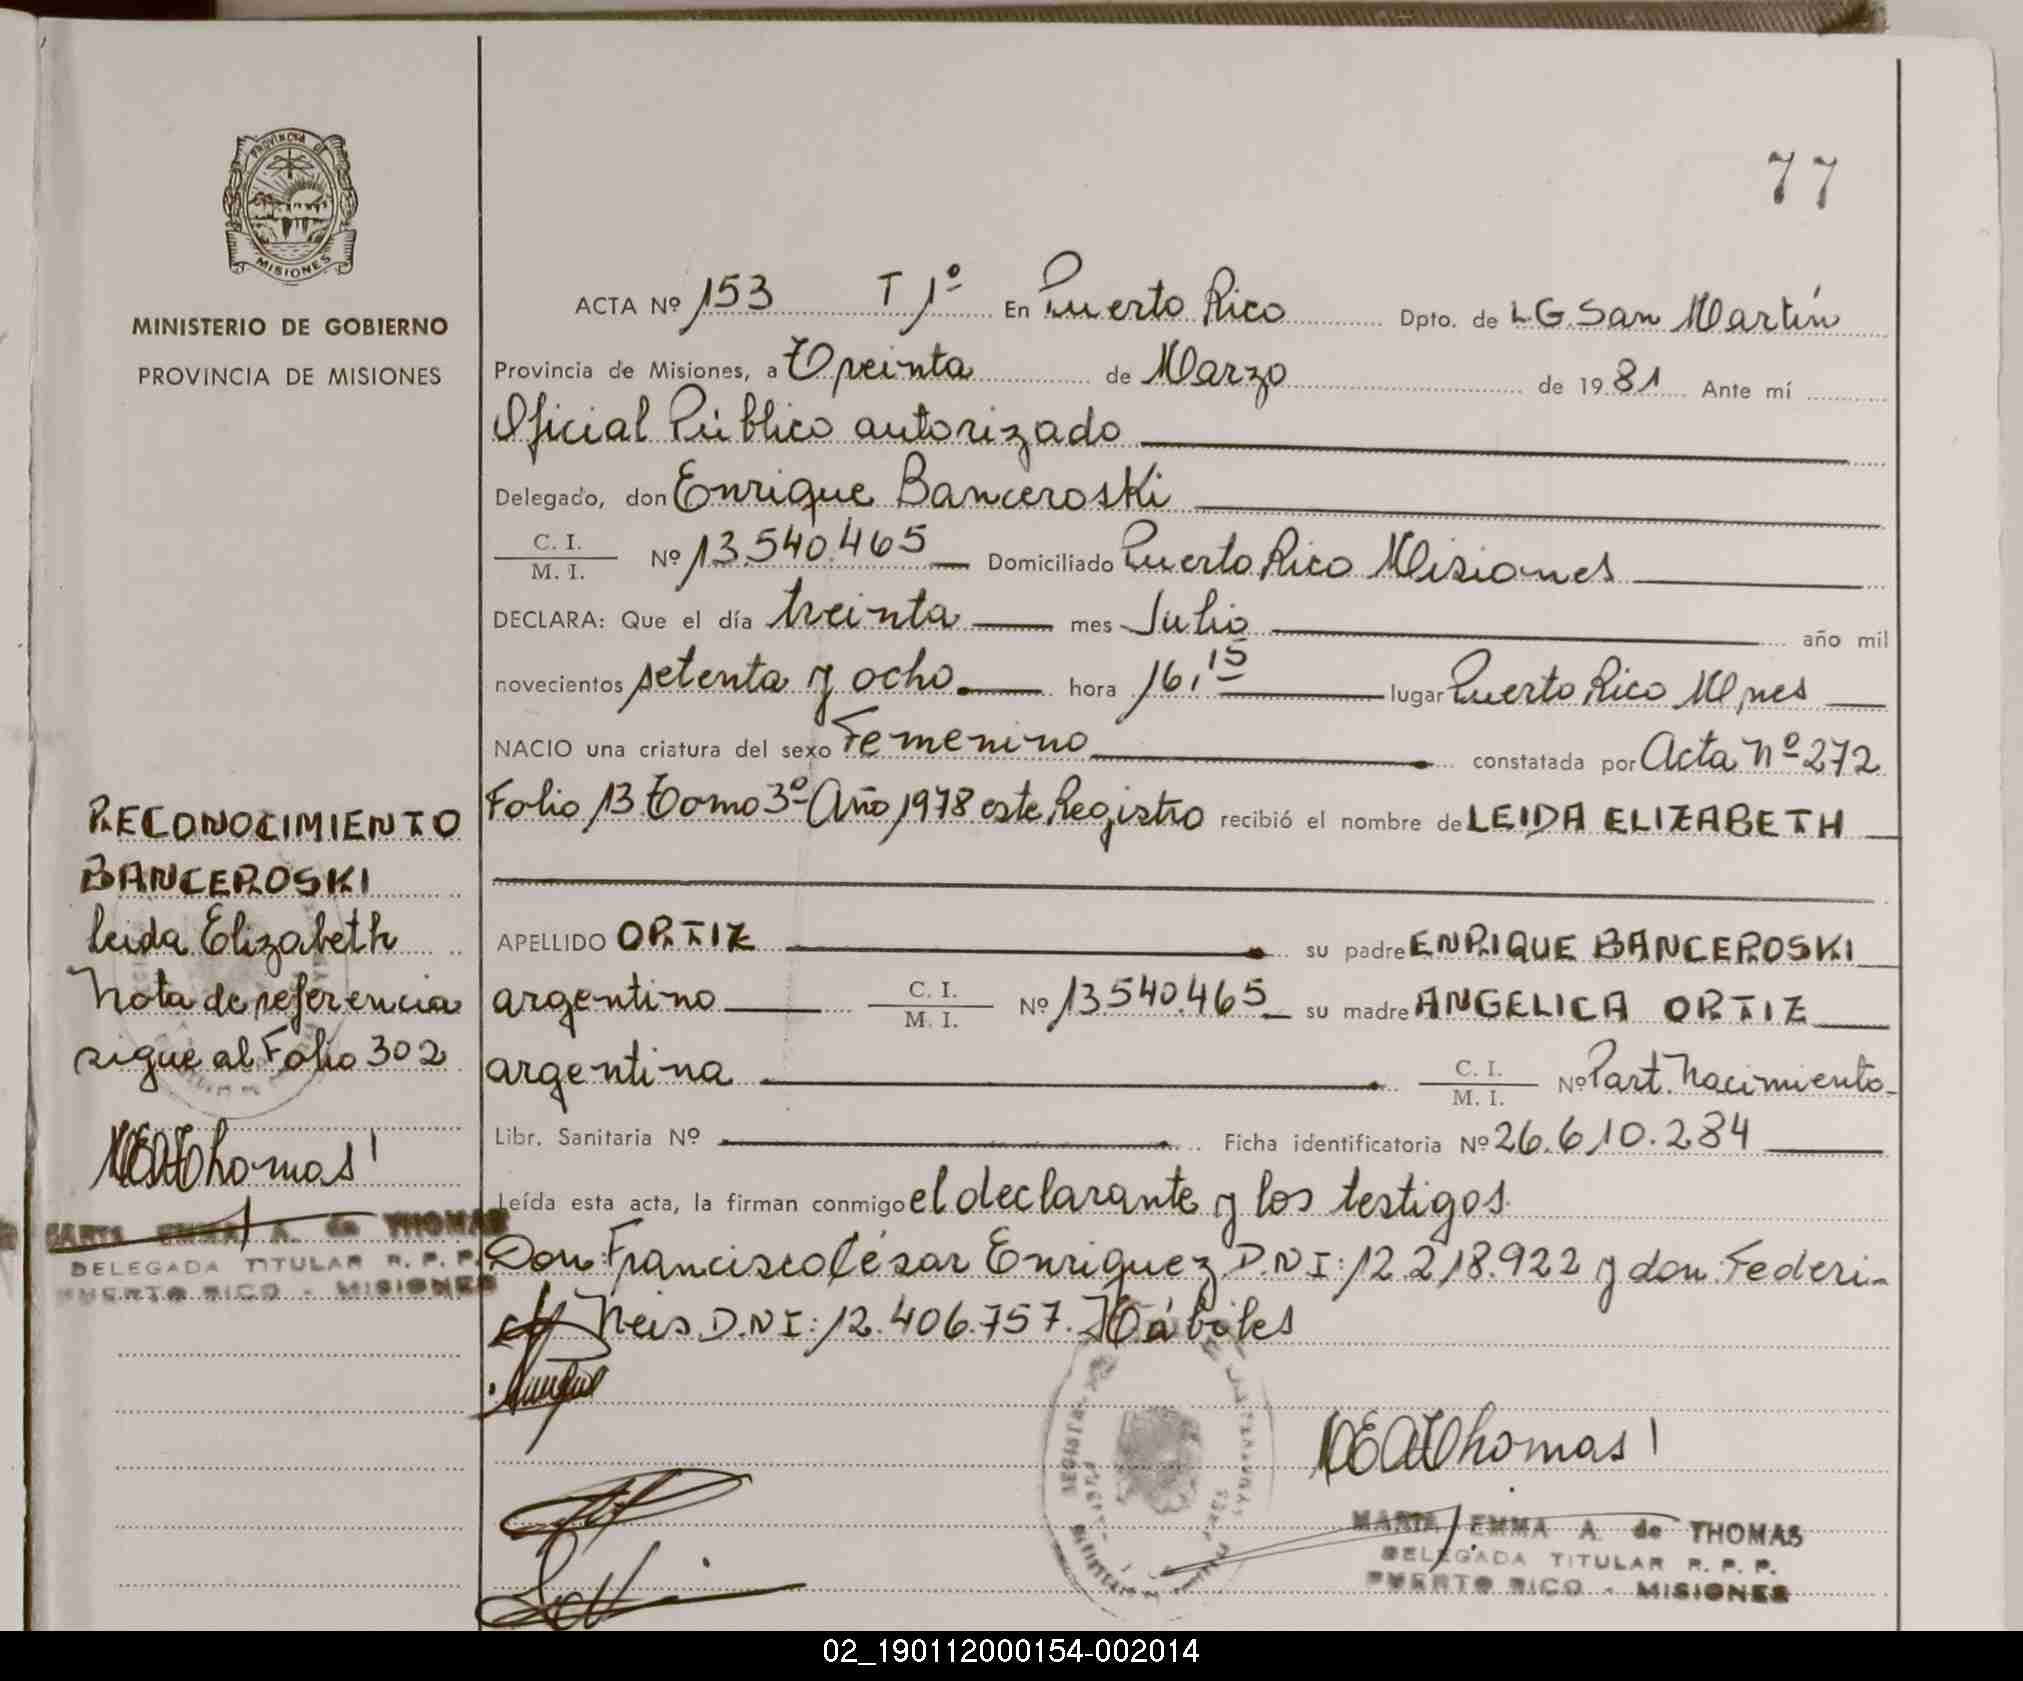 77
PROVINCIA DE
MISIONES
MINISTERIO DE GOBIERNO
PROVINCIA DE MISIONES
ACTA Nº 153 T 1º En Puerto Rico Dpto. de L.G. San Martín
Provincia de Misiones, a Treinta de Marzo de 1981 Ante mí
Oficial Público autorizado
Delegado, don Enrique Banceroski
C. I.
M. I. Nº 13.540.465 Domiciliado Puerto Rico Misiones
DECLARA: Que el día treinta mes Julio año mil
novecientos setenta y ocho. hora 16,15 lugar Puerto Rico Mnes
NACIO una criatura del sexo Femenino constatada por Acta nº 272
Folio 13 Tomo 3º Año 1978 este Registro recibió el nombre de LEIDA ELIZABETH
APELLIDO ORTIZ su padre ENRIQUE BANCEROSKI
argentino C. I.
M. I. Nº 13.540.465 su madre ANGELICA ORTIZ
argentina C. I.
M. I. Nº Part. Nacimiento
Libr. Sanitaria Nº Ficha identificatoria Nº 26.610.284
Leída esta acta, la firman conmigo el declarante y los testigos
Don Francisco César Enriquez D.N I: 12.218.922 y don Federi-
Neis D.N I: 12.406.757. Hábiles
RECONOCIMIENTO
BANCEROSKI
Leida Elizabeth
Nota de referencia
sigue al Folio 302
MEAThomas
EMMA A. de THOMAS
DELEGADA TITULAR R. P. P.
PUERTO RICO - MISIONES
MEAThomas
MARIA EMMA A. de THOMAS
DELEGADA TITULAR R. P. P.
PUERTO RICO - MISIONES
02_190112000154-002014